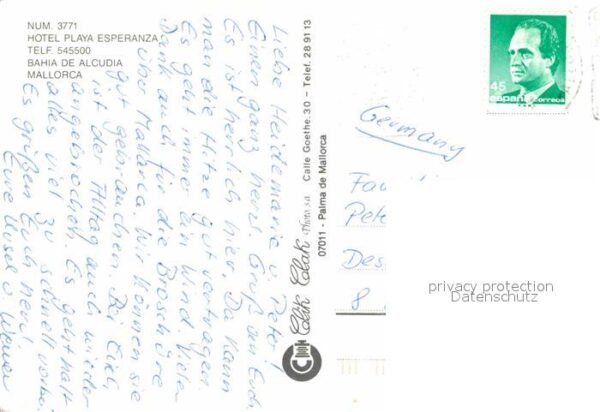 NUM. 3771
HOTEL PLAYA ESPERANZA
TELF. 545500
BAHIA DE ALCUDIA
MALLORCA
Liebe Heidemarie u. Peter!
Einen ganz herzl. Gruß an Euch.
Es ist herrlich hier. Da kann
man die Hitze gut vertragen.
Es geht immer ein Wind. Vielen
Dank auch für die Broschüre
über Mallorca. Wir können sie
gut gebrauchen. Bei Euch
ist der Alltag auch wieder
angebrochen. Es geht halt
alles viel zu schnell vorbei.
Es grüßen Euch herzl.
Eure Ursel u. Werner
Clik Clak Photo, s.a. Calle Goethe, 30 - Telef. 28 91 13
07011 - Palma de Mallorca
45
españa correos
Germany
Fa
Pete
Des
8
privacy protection
Datenschutz